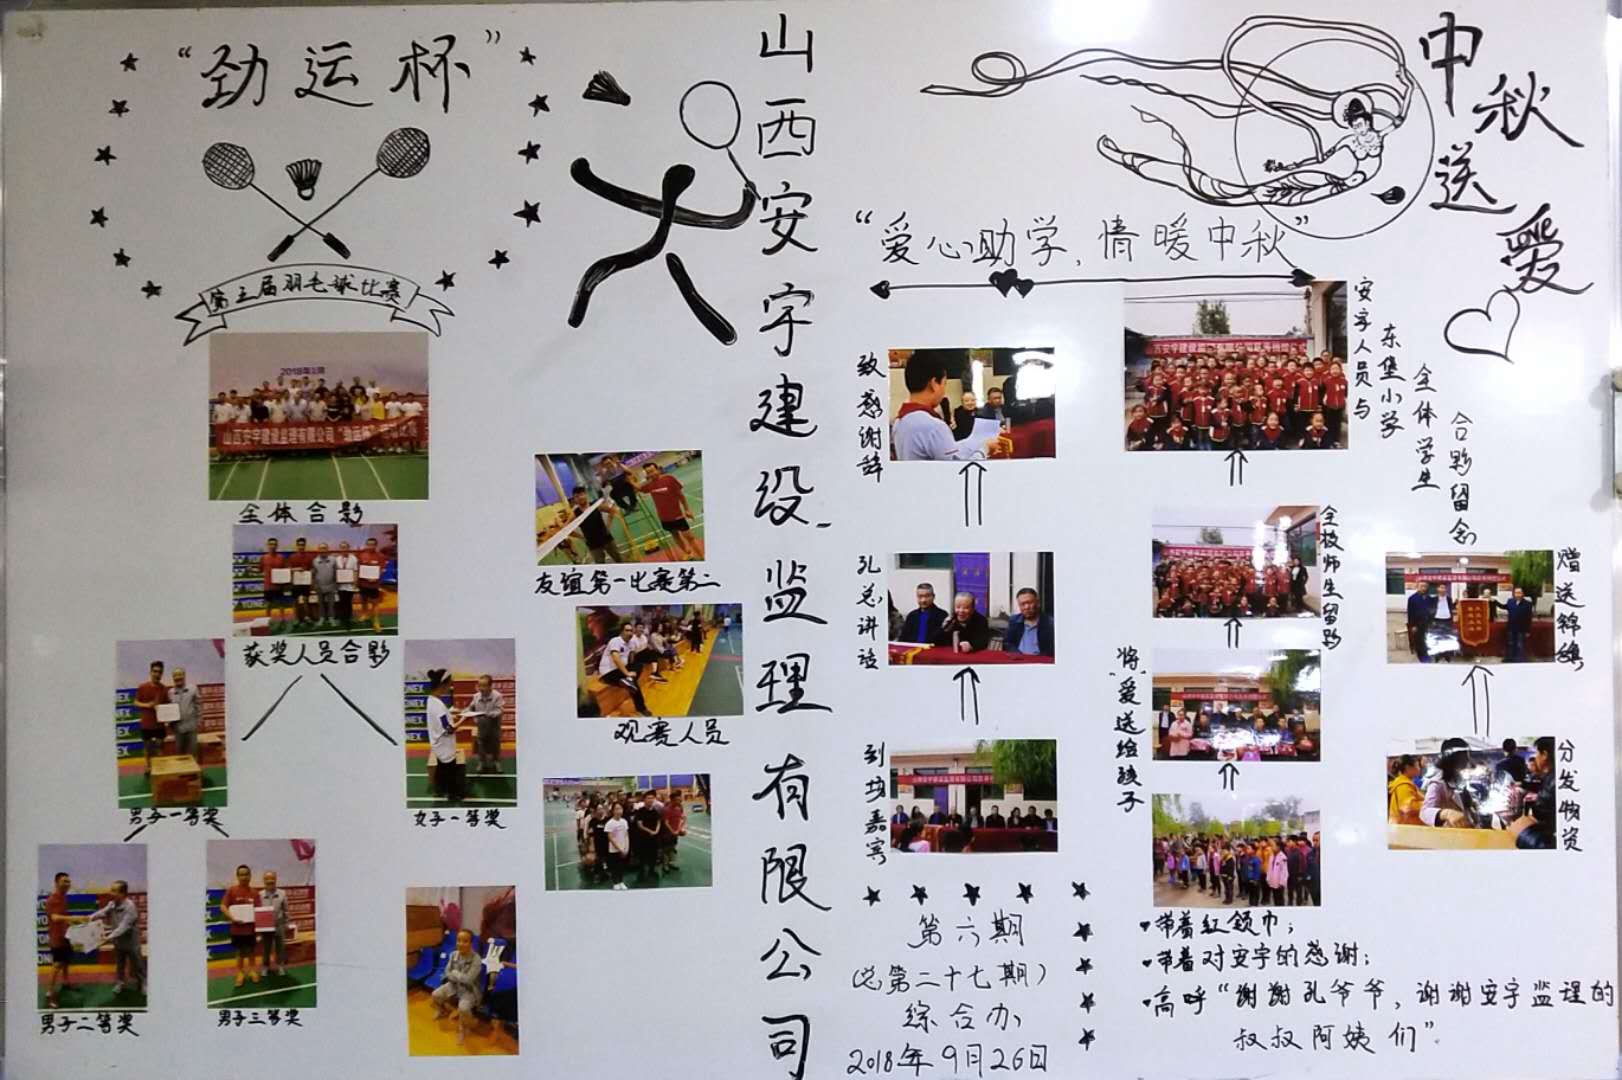 “劲运杯”
第三届羽毛球比赛
2018年
山西安宇建设监理有限公司“劲运杯”
全体合影
获奖人员合影
男子一等奖
女子一等奖
男子二等奖
男子三等奖
友谊第一比赛第二
观赛人员
YONEX
山西安宇建设监理有限公司
中秋送爱
LOVE
“爱心助学,情暖中秋”
致感谢辞
孔总讲话
到场嘉宾
安宇人员与
东堡小学
全体学生
合影留念
全校师生留影
将“爱送给孩子
赠送锦旗
分发物资
第六期
(总第二十七期)
综合办
2018年9月26日
带着红领巾;
带着对安宇的感谢;
高呼“谢谢孔爷爷,谢谢安宇监理的
叔叔阿姨们”.